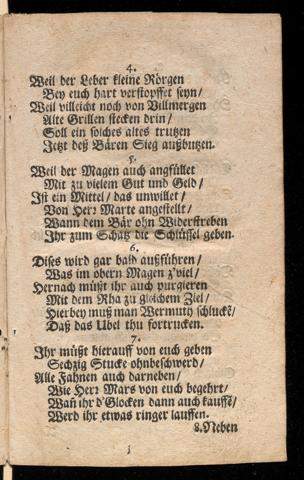 4.
Weil der Leber kleine Rörgen
Bey euch hart verstopffet seyn/
Weil villeicht noch von Villmergen
Alte Grillen stecken drin/
Soll ein solches altes trutzen
Jetzt deß Bären Sieg außbutzen.
5.
Weil der Magen auch angfüllet
Mit zu vielem Gut und Geld/
Ist ein Mittel/ das unwillet/
Von Herr Marte angestellt/
Wann dem Bär ohn Widerstreben
Ihr zum Schatz die Schlüssel geben.
6.
Dises wird gar bald außführen/
Was im obern Magen z'viel/
Hernach müßt ihr auch purgieren
Mit dem Rha zu gleichem Ziel/
Hierbey muß man Wermuth schlucke͂/
Daß das Ubel thu fortrucken.
7.
Ihr müßt hierauff von euch geben
Sechzig Stucke ohnbeschwerd/
Alle Fahnen auch darneben/
Wie Herr Mars von euch begehrt/
Wan͂ ihr d'Glocken dann auch kauffe͂/
Werd ihr etwas ringer lauffen.
8. Neben